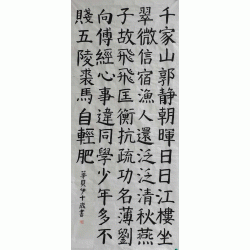 千家山郭靜朝暉日日江樓坐
翠微信宿漁人還泛泛清秋燕
子故飛飛匡衡抗疏功名薄劉
向傅經心事違同學少年多不
賤五陵裘馬自輕肥